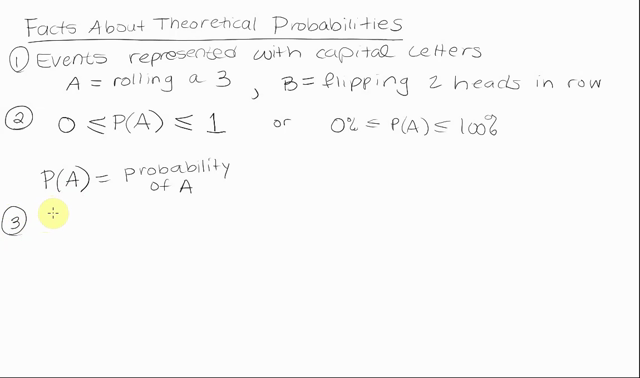 Facts About Theoretical Probabilities
① Events represented with capital letters
A = rolling a 3 , B = flipping 2 heads in row
② 0 ≤ P(A) ≤ 1 or 0% ≤ P(A) ≤ 100%
P(A) = probability
of A
③